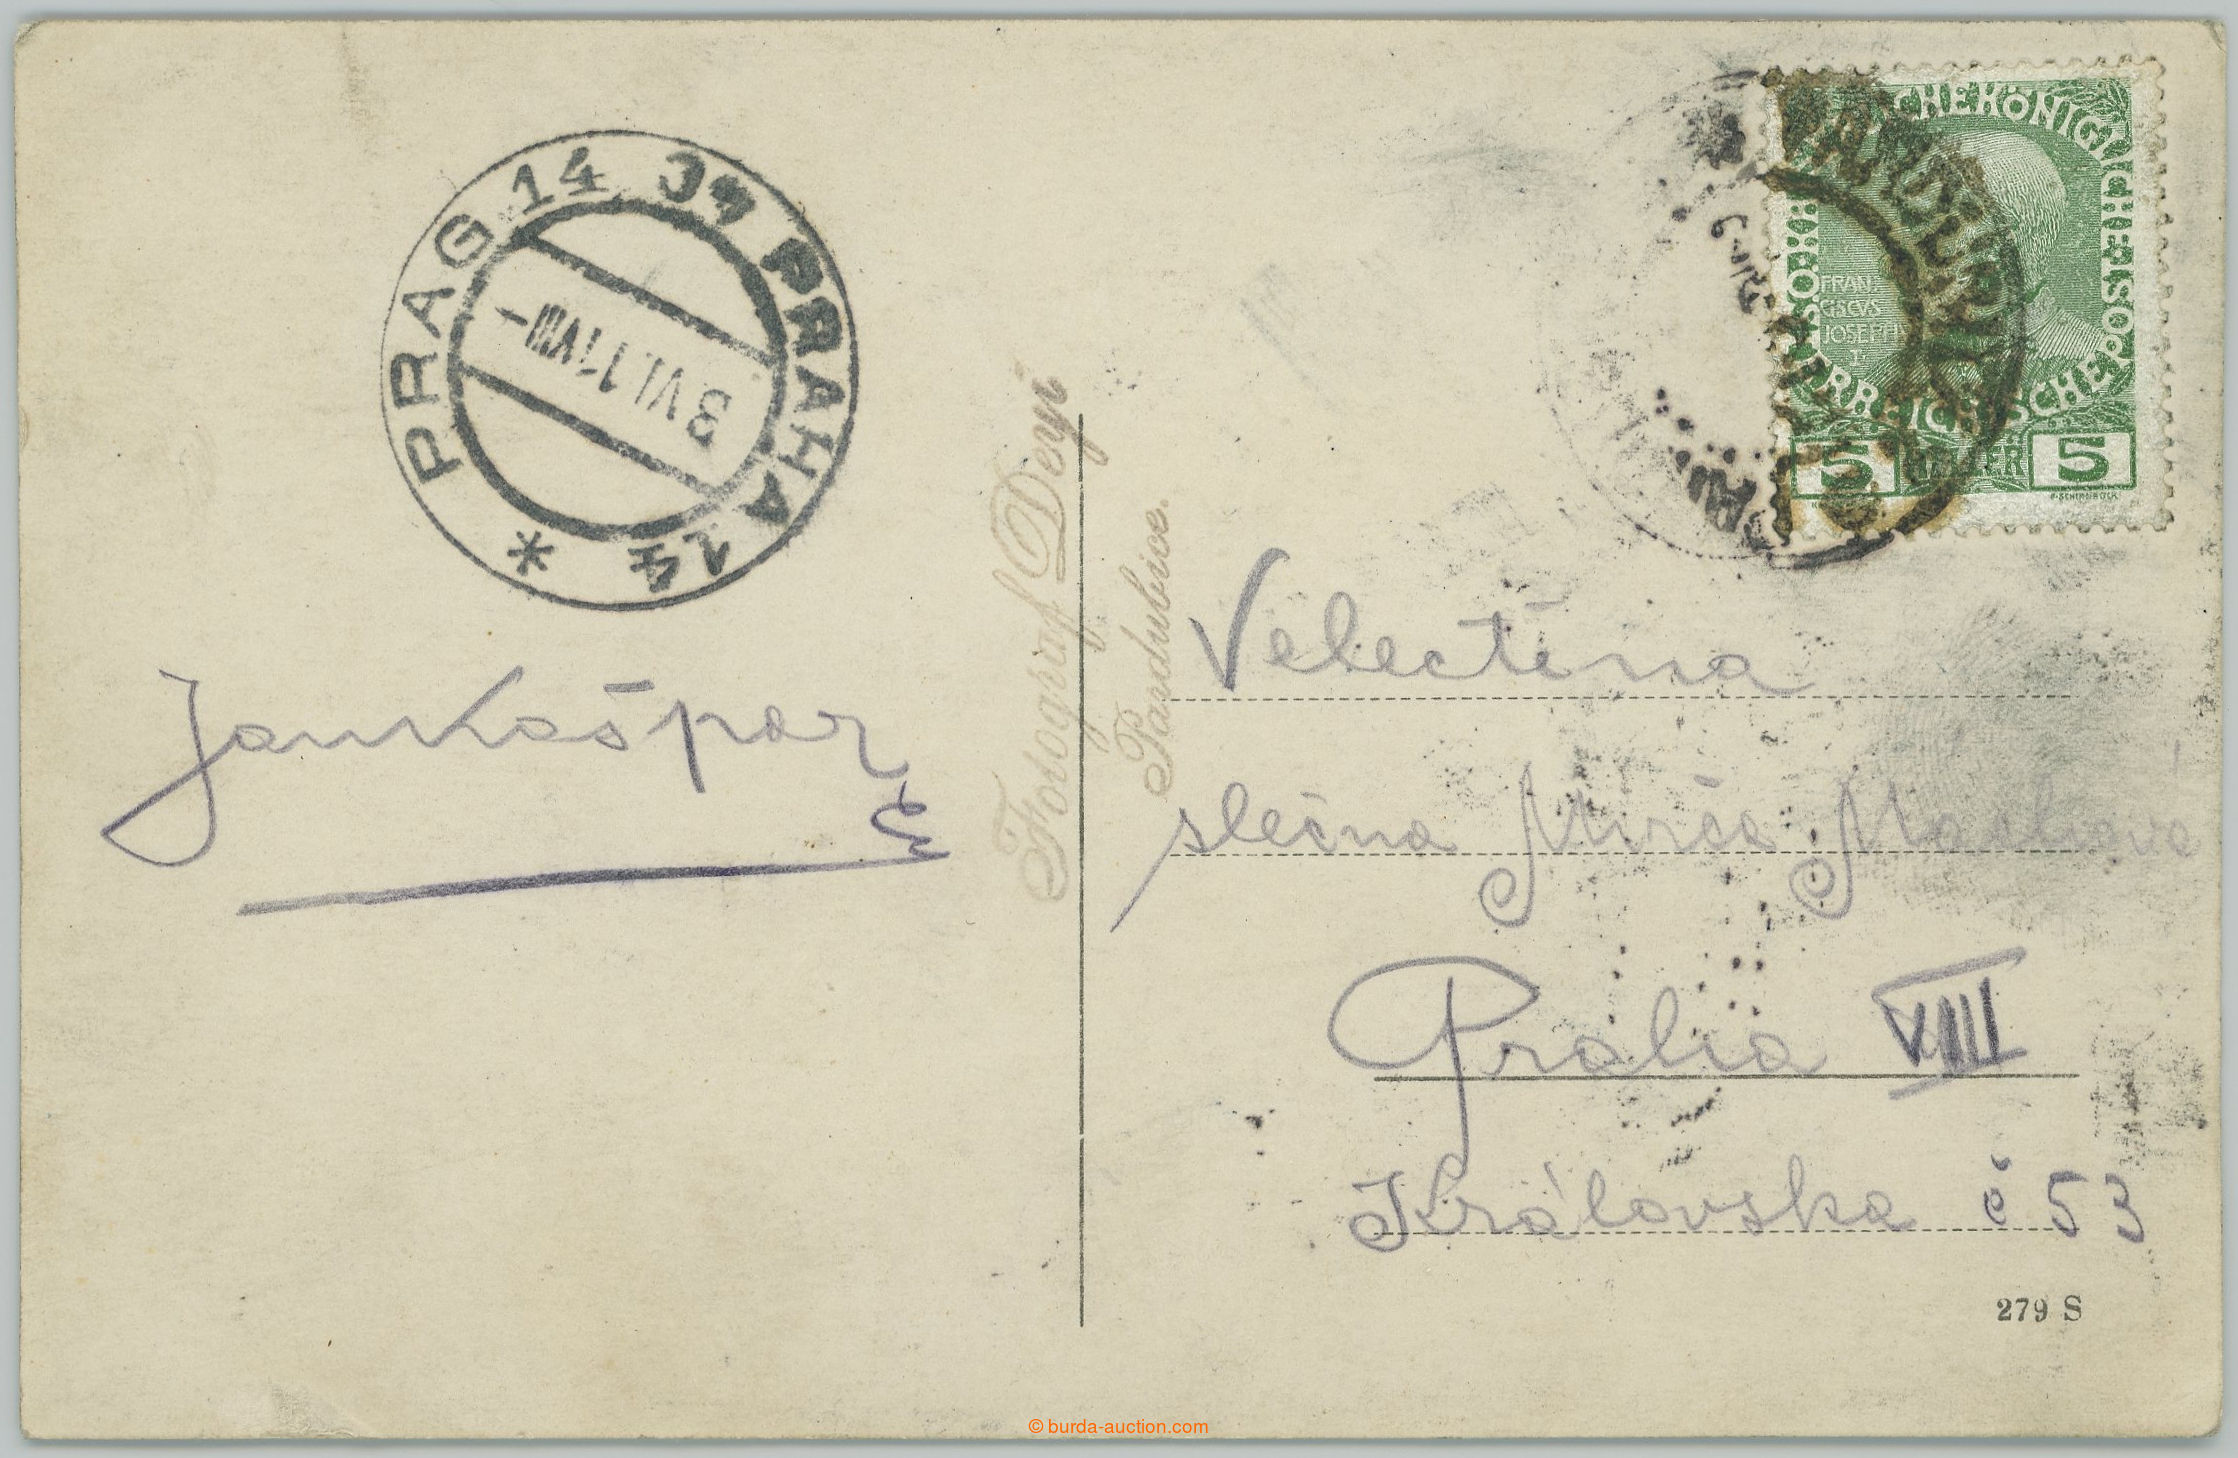 PRAG 14 PRAHA 14 *
3.VI.11 VIII-
Jan Kašpar
Fotograf Denji
Pardubice.
SCHE KÖNIGLICHE POST
KAISERL. ÖSTERREICHISCHE POST
FRAN:
CISCVS
JOSEPH
I.
5 HELLER 5
Velectěna
slečna Mirča Machová
Praha VIII
Královska č 53
279 S
© burda-auction.com